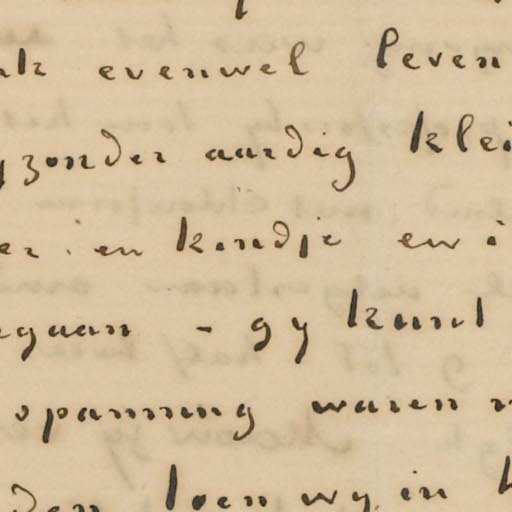 evenwel leven
zonder aardig klei
er. en kindje en i
egaan - gy kunt
spanning waren
den toen wy in